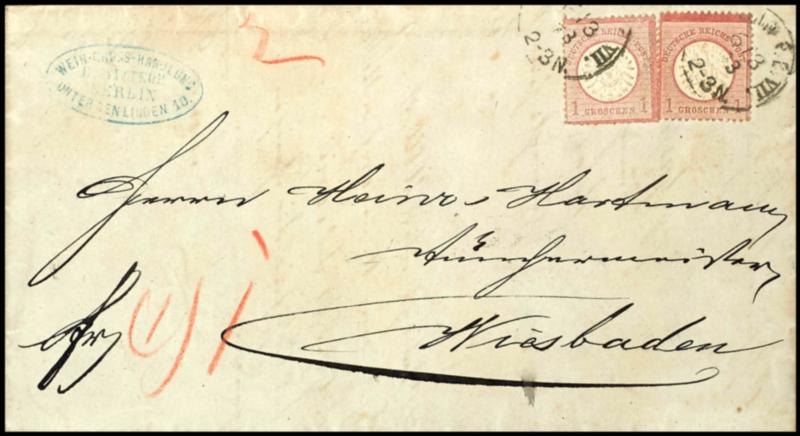 WEIN-GROSS-HANDLUNG
BERLIN
UNTER DEN LINDEN 10.
DEUTSCHE REICHS-POST
1 GROSCHEN 1
DEUTSCHE REICHS-POST
1 GROSCHEN 1
VII.
5/3
2-3N.
VII.
5/3
2-3N.
Herrn Heinr Hartmann
Tünchermeister
Fr
Wiesbaden